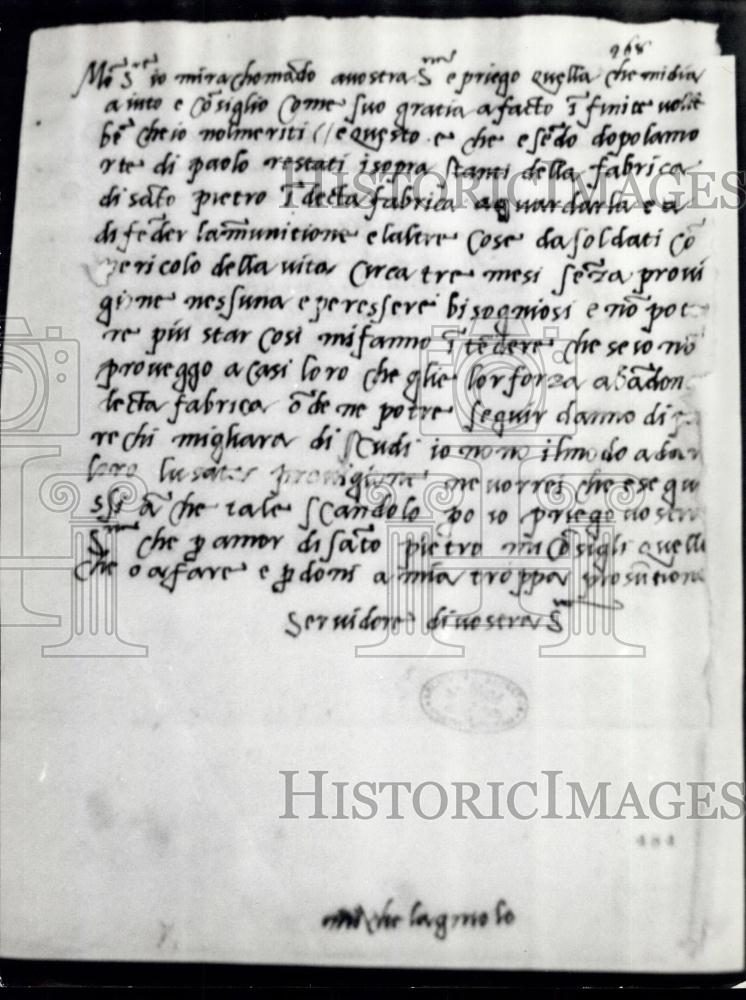 968
Mo S.re io mi rachomado a vostra S e priego quella che mi dia
aiuto e cosiglio come suo gratia a facto i finite volte
be che io nol meriti // e questo e che esedo dopo la mo
rte di paolo restati i sopra stanti della fabrica
di sato pietro i decta fabrica a guardarla e a
difeder la munitione e l altre cose da soldati co
pericolo della vita circa tre mesi seza provi
gione nessuna e per essere bisogniosi e no pot
re piu star cosi mi fanno itedere che se io no
proveggo a casi loro che gli e lor forza abadon
decta fabrica ode ne potre seguir danno di pa
rechi migliara di scudi io no no il modo a dar
loro l usata provigione ne vorrei che e segui
ssi a che tale scandolo po io priego vostra
S che p amor di sato pietro mi cosigli quello
che o a fare e pdoni a mia troppa prosutione
Servidore di vostra S
484
michelagniolo
HISTORICIMAGES
HISTORICIMAGES